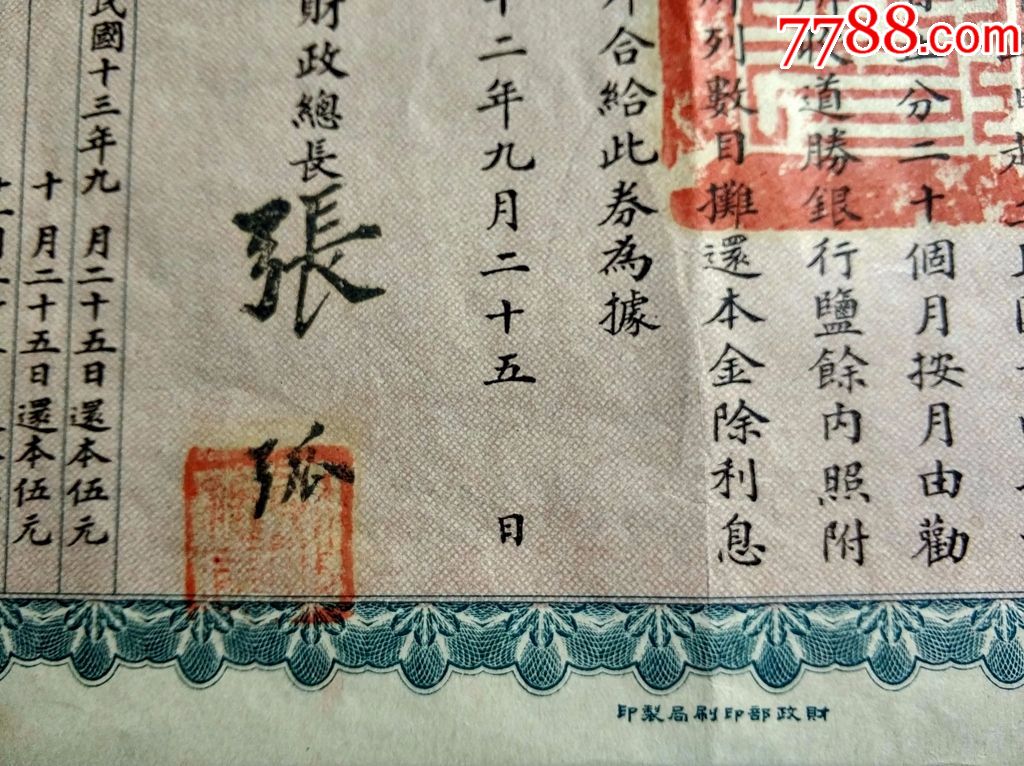 7788.com
分二十個月按月由勸
道勝銀行鹽餘內照附
列數目攤還本金除利息
合給此券為據
十二年九月二十五日
日
財政總長
張
弧
民國十三年九月二十五日還本伍元
十月二十五日還本伍元
財政部印刷局製印